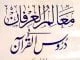 معالم العرفان
في
دروس القرآن